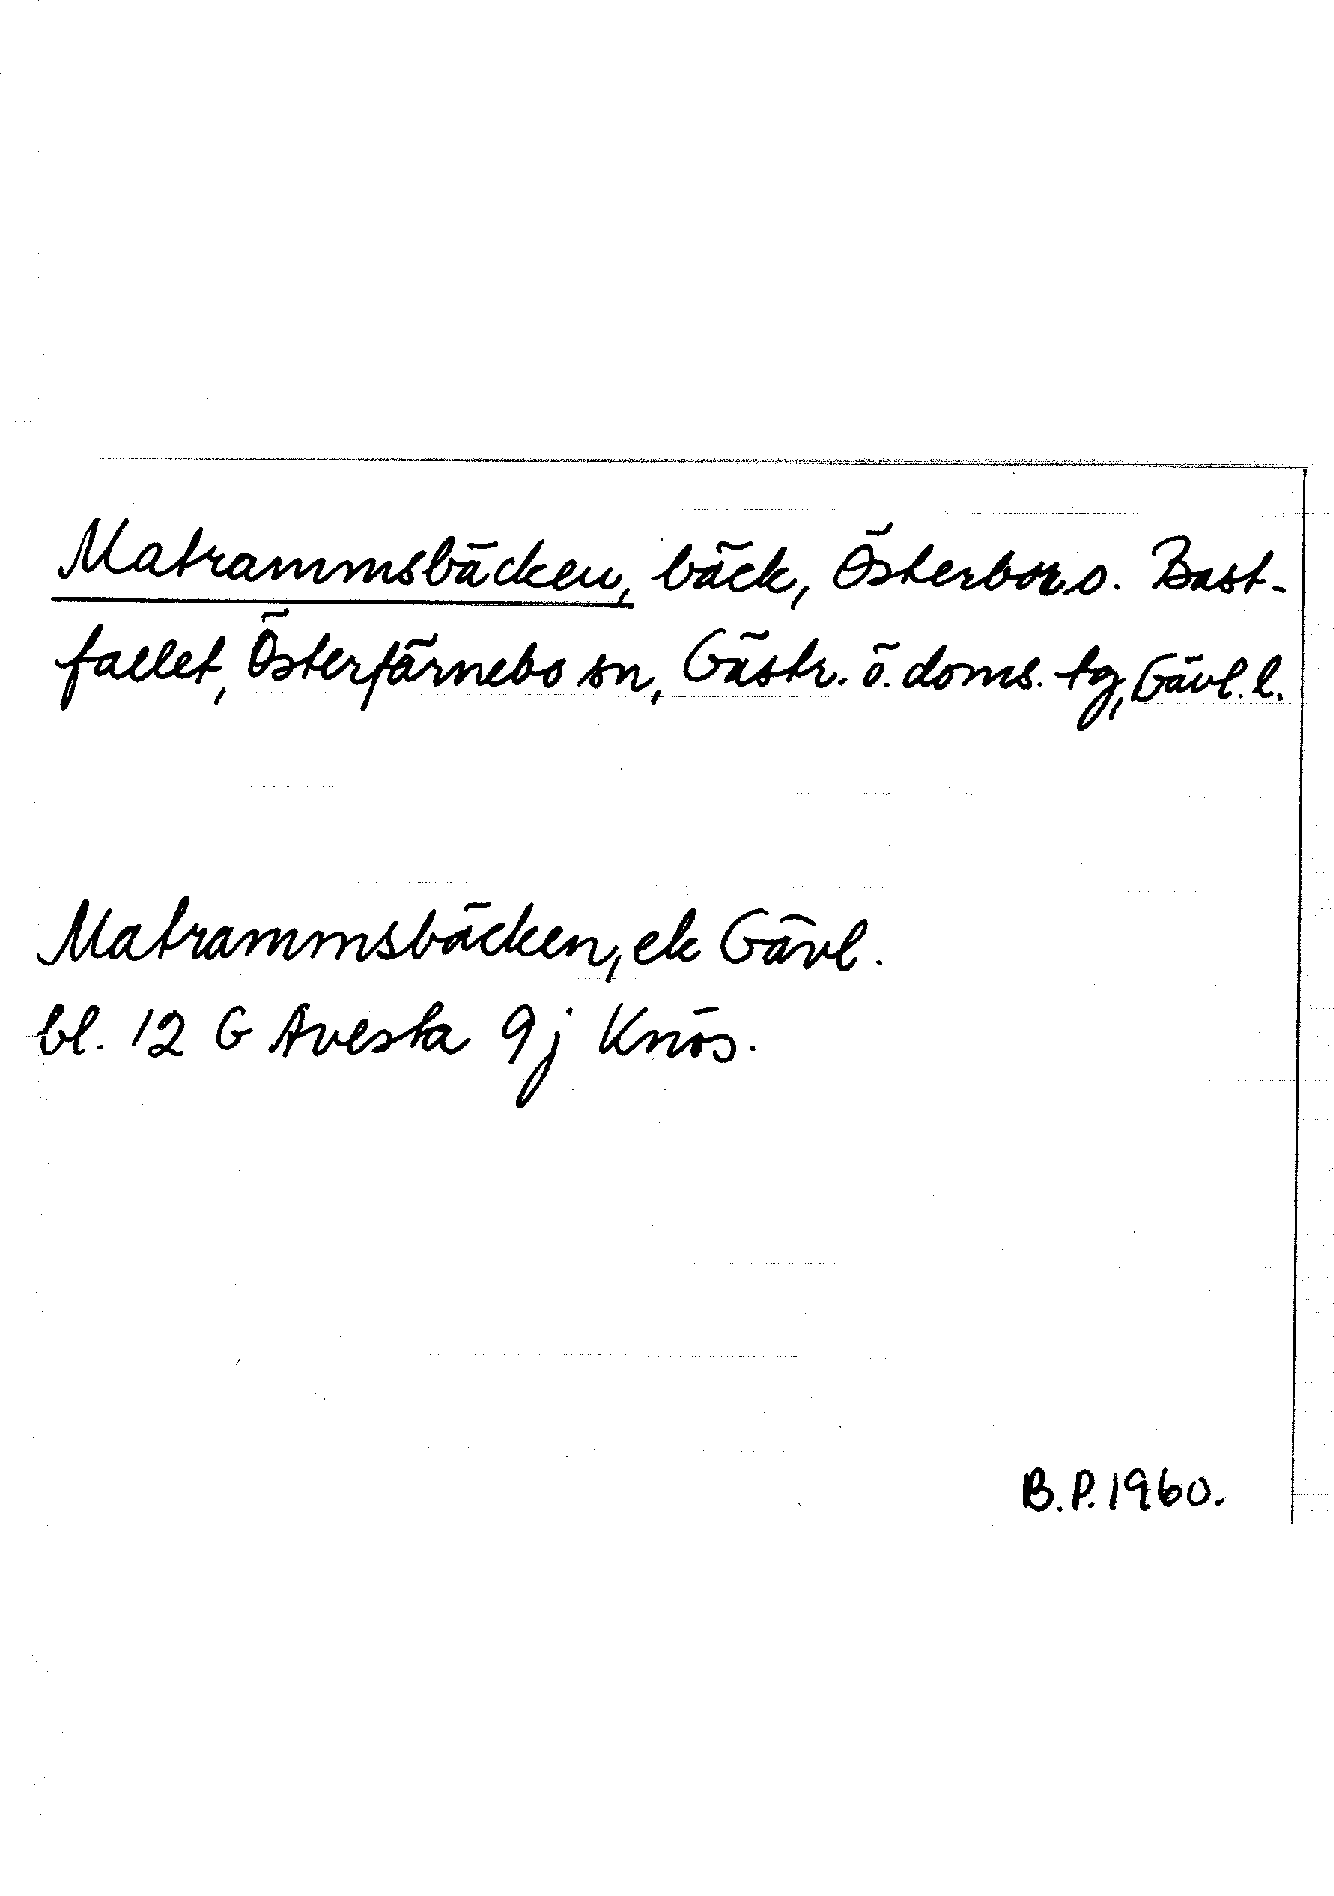 Matrammsbäcken, bäck, Österbor o. Bast-
fallet, Österfärnebo sn, Gästr. ö. doms. tg, Gävl. l.
Matrammsbäcken, ek Gävl.
bl. 12 G Avesta 9j Knös.
B.P. 1960.